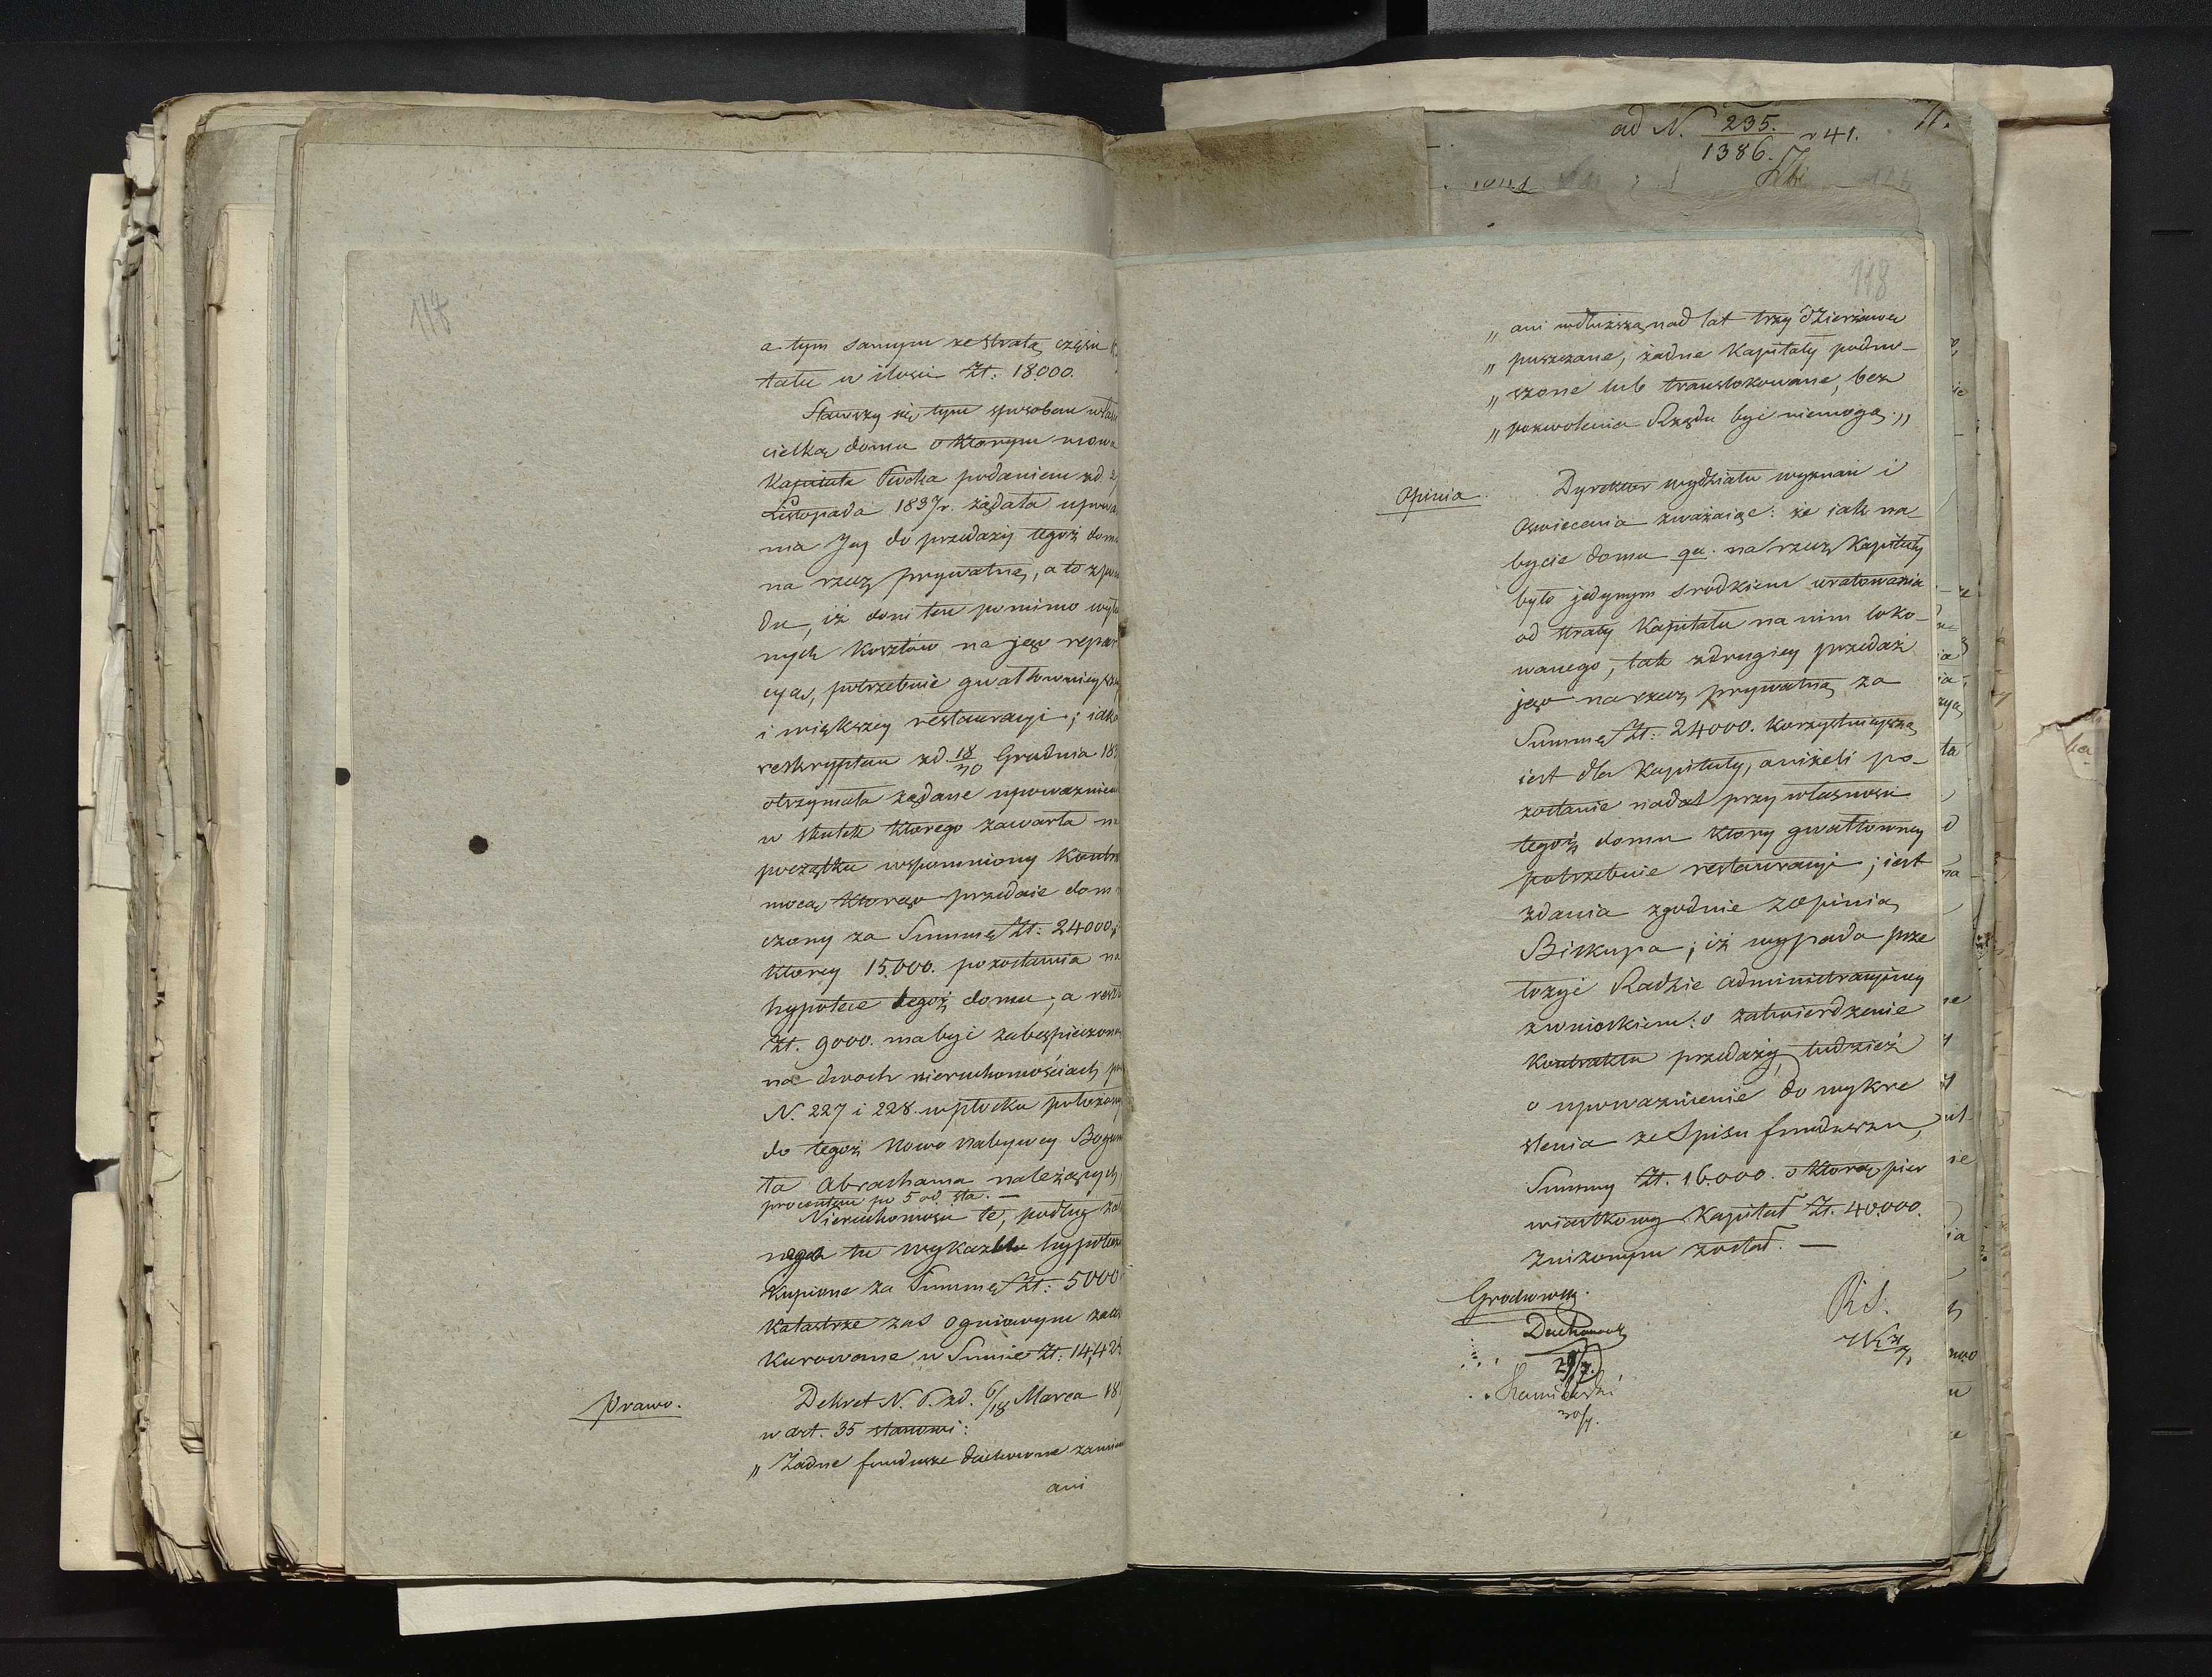 117
a tym samym ze stratą części
tału w ilosci Zł: 18000.
Stawszy się tym sposobem
cielką domu o którym mowa
Kapituła Płocka podaniem zd. 2
Listopada 1837 r. żądała
nia Jey do przedaży tegoż domu
na rzecz prywatną, a to z
du, iż dom ten pomimo
nych kosztów na jego repar
cya, potrzebuie gwałtowniejszey
i większey restauracyi; iako
reskryptem zd 18/30 Grudnia 183
otrzymała żądane upoważnienie
w skutek którego zawarła na
początku wspomniony Kontr
mocą którego przedaie dom
czony za Summę Zł: 24000,
którey 15.000. pozostawia na
hypotece tegoż domu, a reszta
Zł. 9000. ma być zabespieczona
na dwoch nieruchomościach
N. 227 i 228. w Płocku położony
do tegoż nowo Nabywcy Bogum
ta Abrachama należących
procentem po 5 od sta. —
Nieruchomości te, podług
tu wykazu hypotecz
Kupione za Summę Zł: 5000
Katastrze zaś ogniowym
Kurowane w Summie Zł: 14,42
Prawo.
Dekret N. P. zd. 6/18 Marca 18
w art. 35 stanowi:
„ Żadne fundusze duchowne zamien
ani
ad N. 235./1386. r 41.
118
„ ani w dłuższą nad lat trzy dzierżawę
„ puszczane, żadne Kapitały podno-
„ szone lub translokowane, bez
„ pozwolenia Rządu być niemogą.„
Opinia.
Dyrektor wydziału wyznań i
Oswiecenia zważaiąc: że iak na-
bycie domu qu. na rzecz Kapituły
było jedynym srodkiem uratowania
od straty Kapitału na nim loko-
wanego, tak z drugiey przedaż
jego na rzecz prywatną za
Summę Zł: 24000. korzystniejszą
iest dla Kapituły, aniżeli po-
zostanie nadal przy własnosci
tegoż domu który gwałtowney
potrzebuie restauracyi; iest
zdania zgodnie z opinią
Biskupa; iż wypada prze
łożyć Radzie Administracyiney
z wnioskiem: o zatwierdzenie
Kontraktu przedaży, tudzież
o upoważnienie do wykre
slenia ze Spisu funduszu,
Summy Zł. 16.000. o którą pier
wiastkowy Kapitał Zł. 40.000.
zniżonym został. —
Grochowski.
29/7.
30/7.